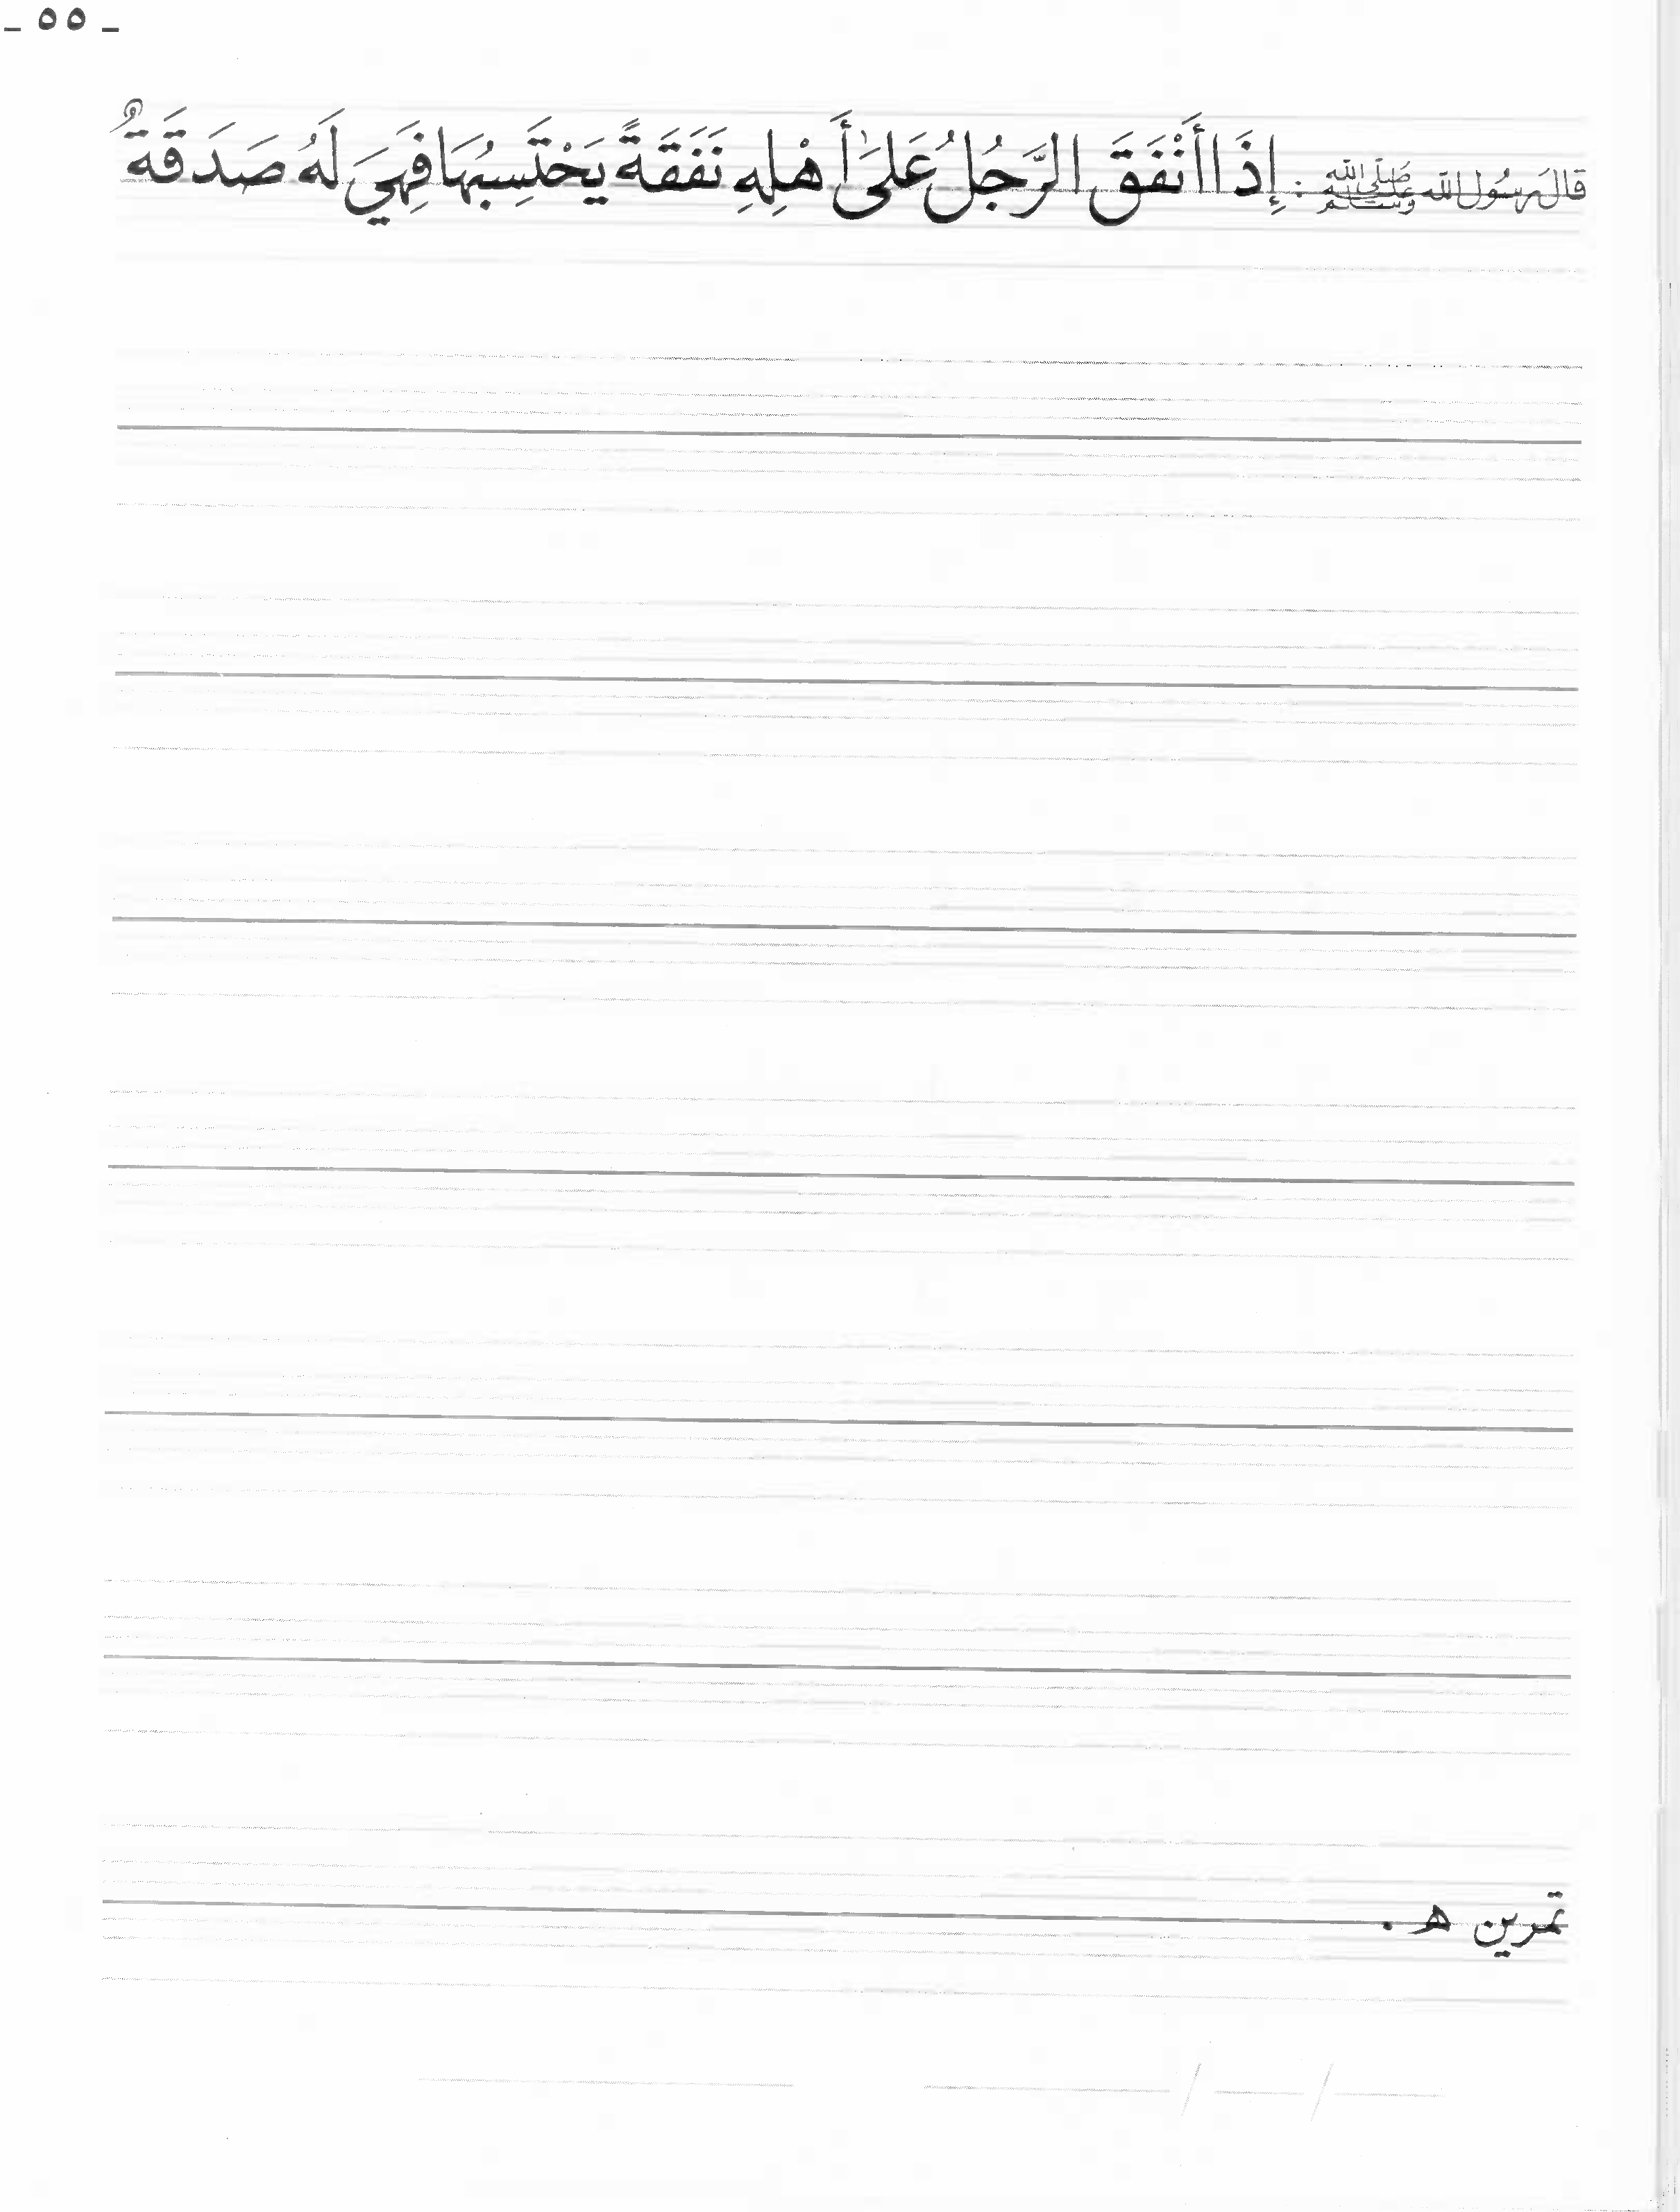 - ٥٥ -
قَالَ رَسُولُ اللهِ صَلَّى اللهُ عَلَيْهِ وَسَلَّمَ : إِذَا أَنْفَقَ الرَّجُلُ عَلَىٰ أَهْلِهِ نَفَقَةً يَحْتَسِبُهَا فَهِيَ لَهُ صَدَقَةٌ
تمرين ھ .